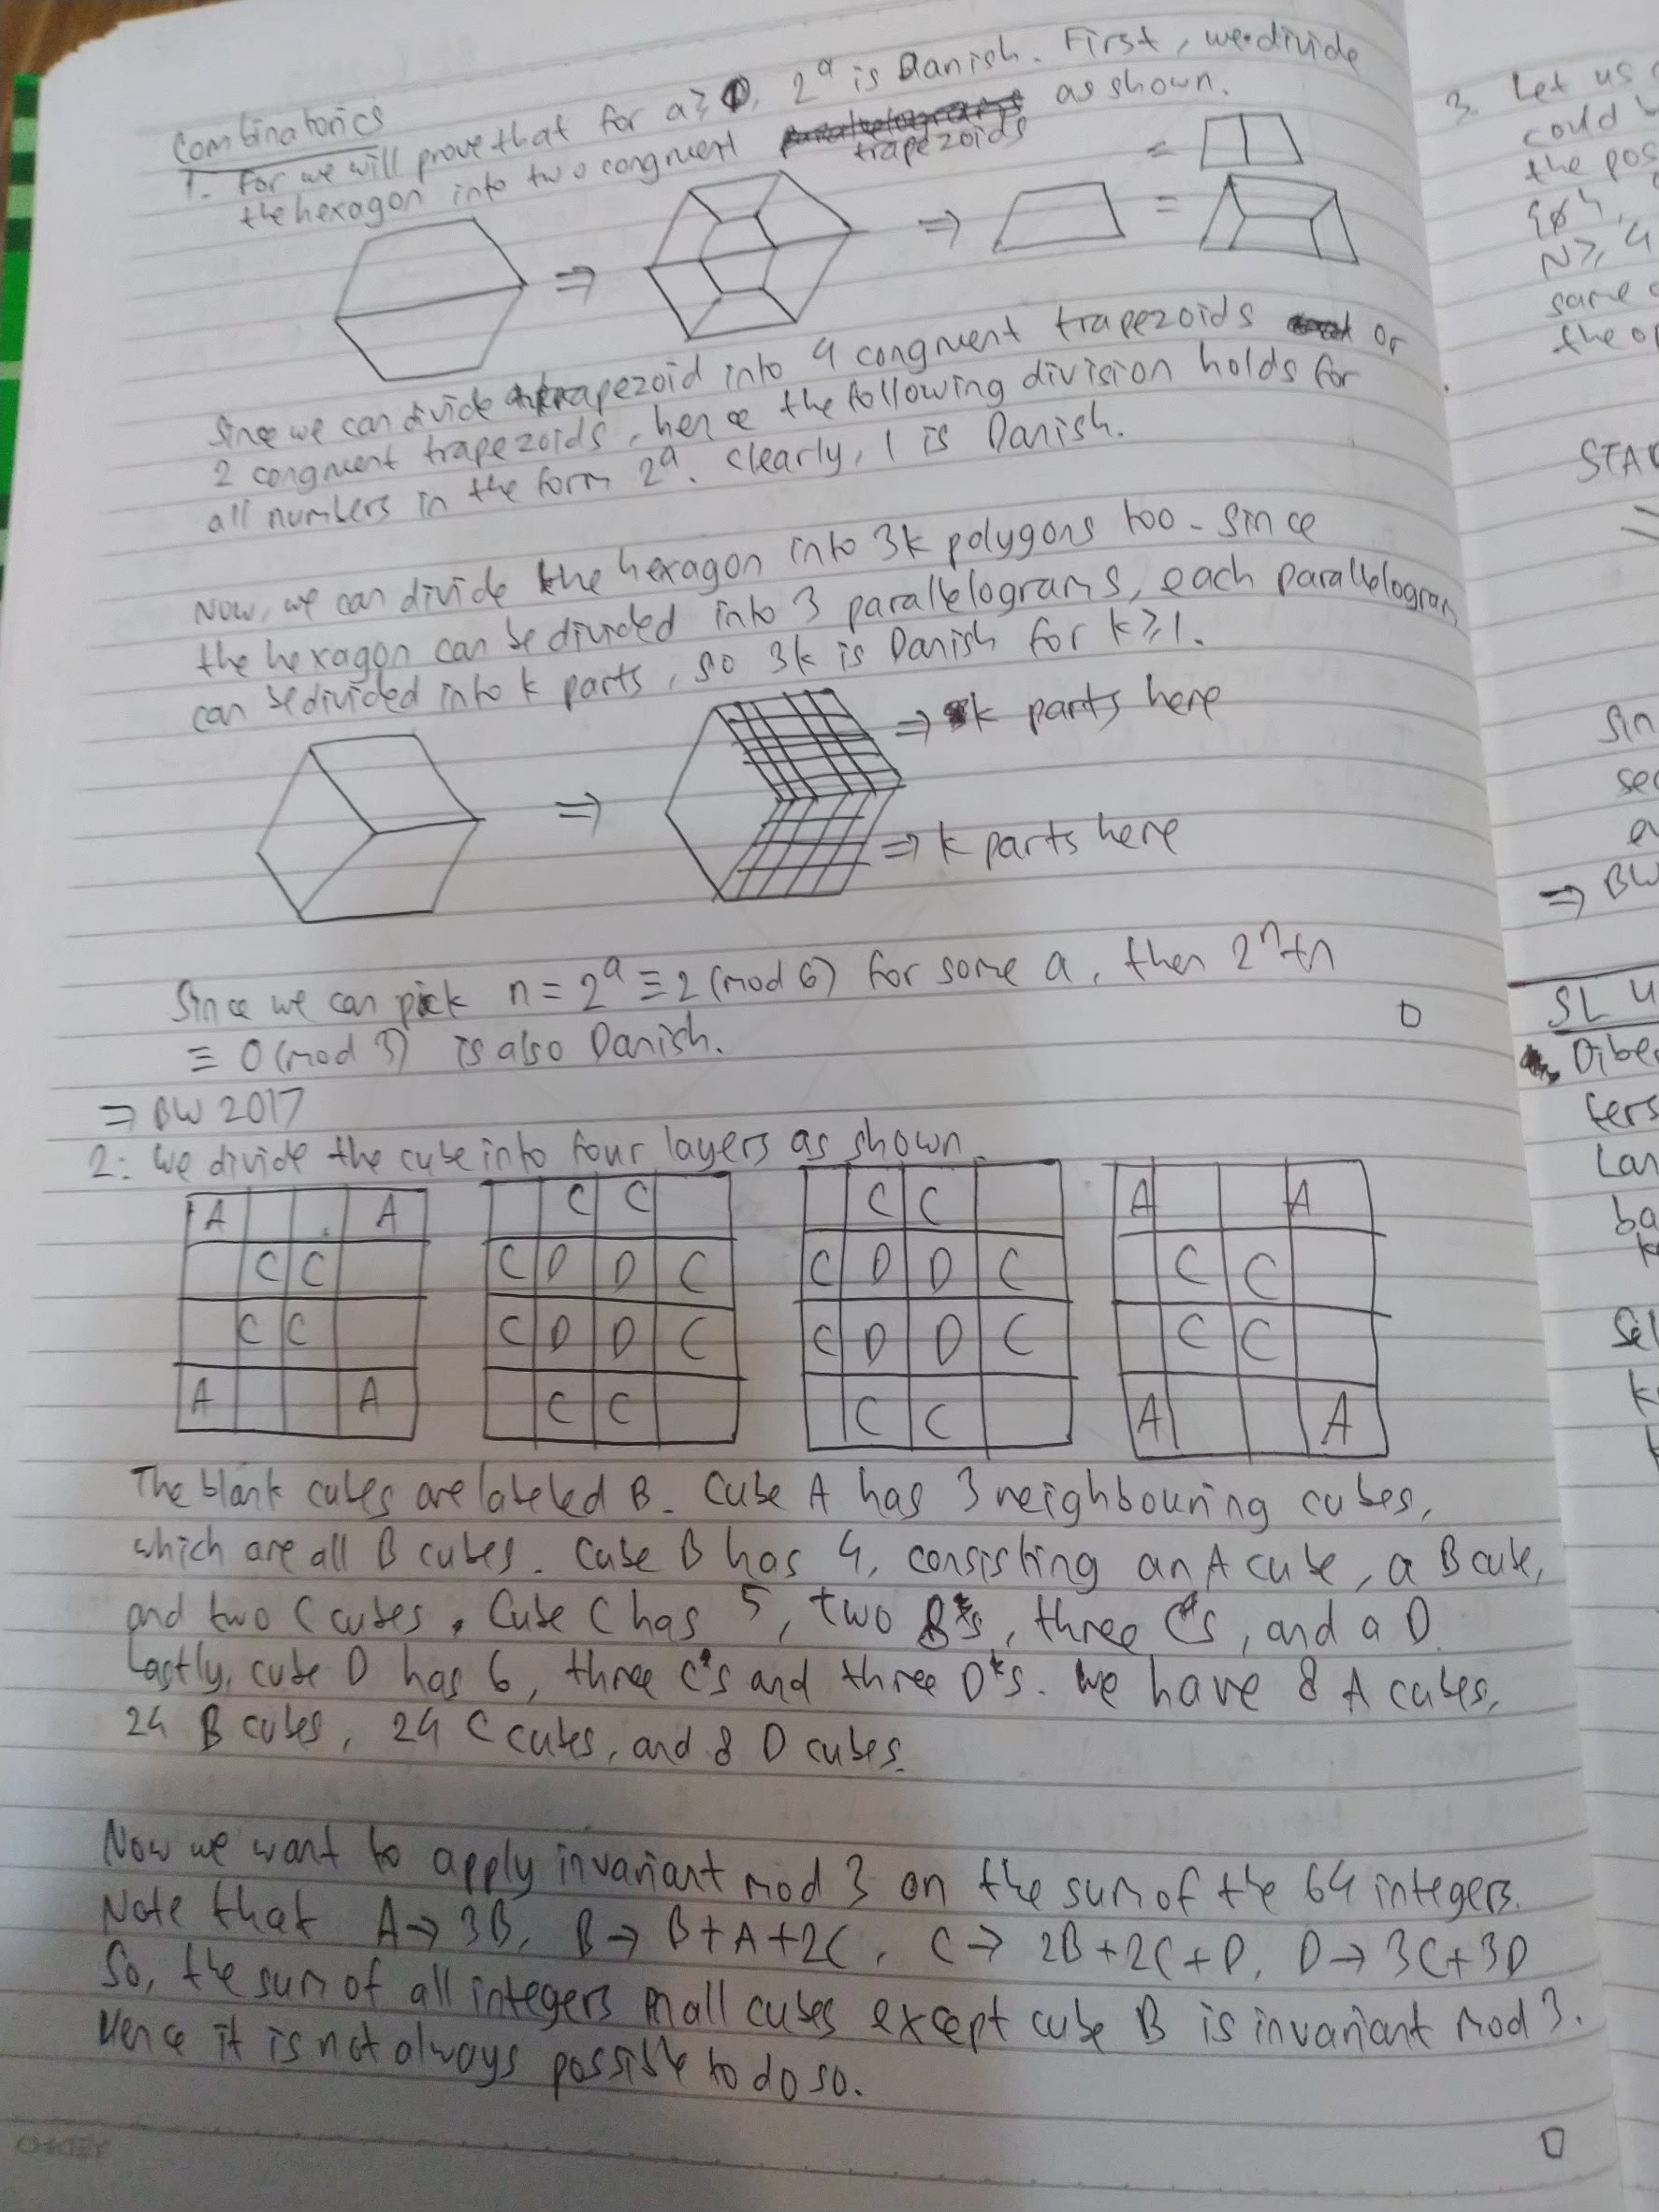 Combinatorics
1. For we will prove that for a ≥ 0, 2^a is Danish. First, we divide
the hexagon into two congruent trapezoids as shown.
⇒ ⇒ = =
Since we can divide trapezoid into 4 congruent trapezoids or
2 congruent trapezoids, hence the following division holds for
all numbers in the form 2^a. Clearly, 1 is Danish.
Now, we can divide the hexagon into 3k polygons too - since
the hexagon can be divided into 3 parallelograms, each parallelogram
can be divided into k parts, so 3k is Danish for k ≥ 1.
⇒ ⇒ k parts here
⇒ k parts here
Since we can pick n = 2^a ≡ 2 (mod 6) for some a, then 2^n + n
≡ 0 (mod 3) is also Danish. □
⇒ BW 2017
2: We divide the cube into four layers as shown.
A A C C C C A A
C C C D D C C D D C C C
C C C D D C C D D C C C
A A C C C C A A
The blank cubes are labeled B. Cube A has 3 neighbouring cubes,
which are all B cubes. Cube B has 4, consisting an A cube, a B cube,
and two C cubes. Cube C has 5, two B's, three C's, and a D.
Lastly, cube D has 6, three C's and three D's. We have 8 A cubes,
24 B cubes, 24 C cubes, and 8 D cubes.
Now we want to apply invariant mod 3 on the sum of the 64 integers.
Note that A → 3B, B → B+A+2C, C → 2B+2C+D, D → 3C+3D
So, the sum of all integers in all cubes except cube B is invariant mod 3.
Hence it is not always possible to do so.
□
3. Let us
could
the pos
N ≥ 4
same
the op
STA
Sin
sec
⇒ BW
SL
Diber
ters
Lan
ba
k
Sel
k